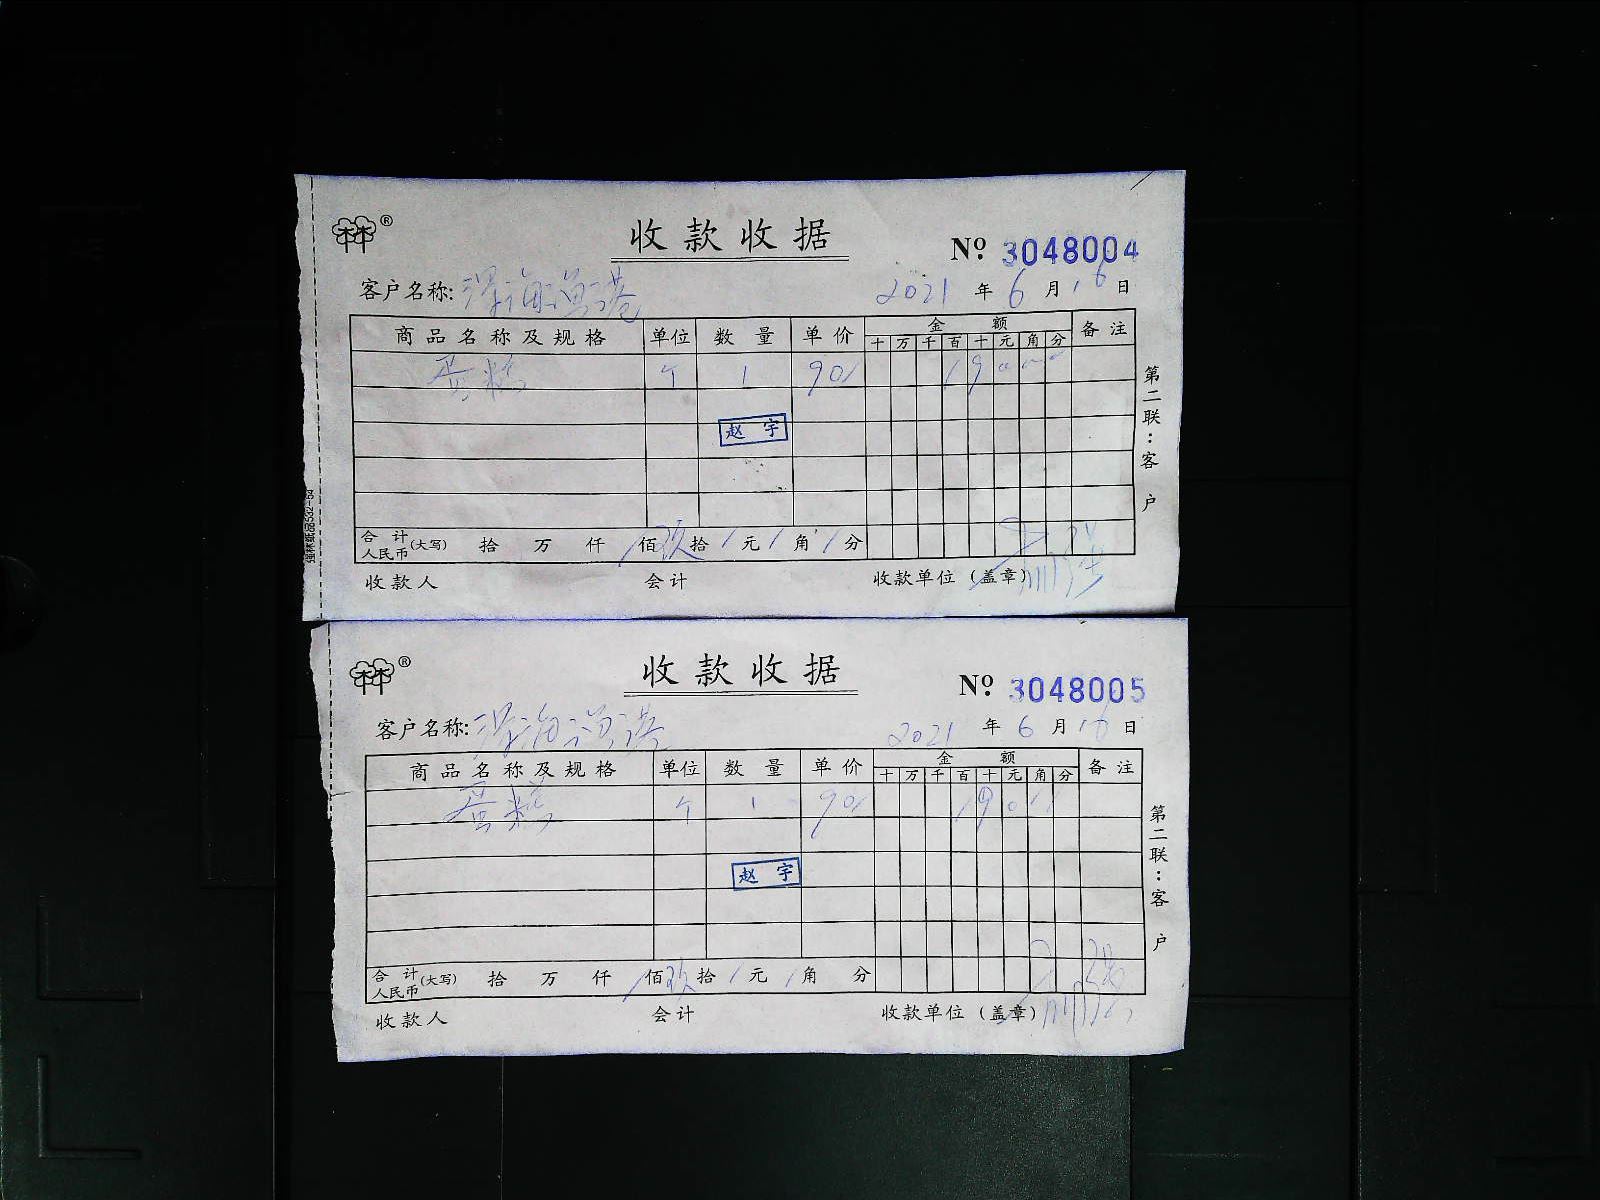 收款收据
№ 3048004
客户名称: 深海渔港 2021 年 6 月 16 日
商品名称及规格 单位 数量 单价 金额 备注
十 万 千 百 十 元 角 分
蛋糕 个 1 90/ 1 9 0
赵宇
合计人民币(大写) 拾 万 仟 / 佰 玖 拾 / 元 / 角 / 分
收款人 会计 收款单位(盖章)
第二联:客户
收款收据
№ 3048005
客户名称: 深海渔港 2021 年 6 月 16 日
商品名称及规格 单位 数量 单价 金额 备注
十 万 千 百 十 元 角 分
蛋糕 个 1 90/ / 9 0 / /
赵宇
合计人民币(大写) 拾 万 仟 / 佰 玖 拾 / 元 / 角 分
收款人 会计 收款单位(盖章)
第二联:客户